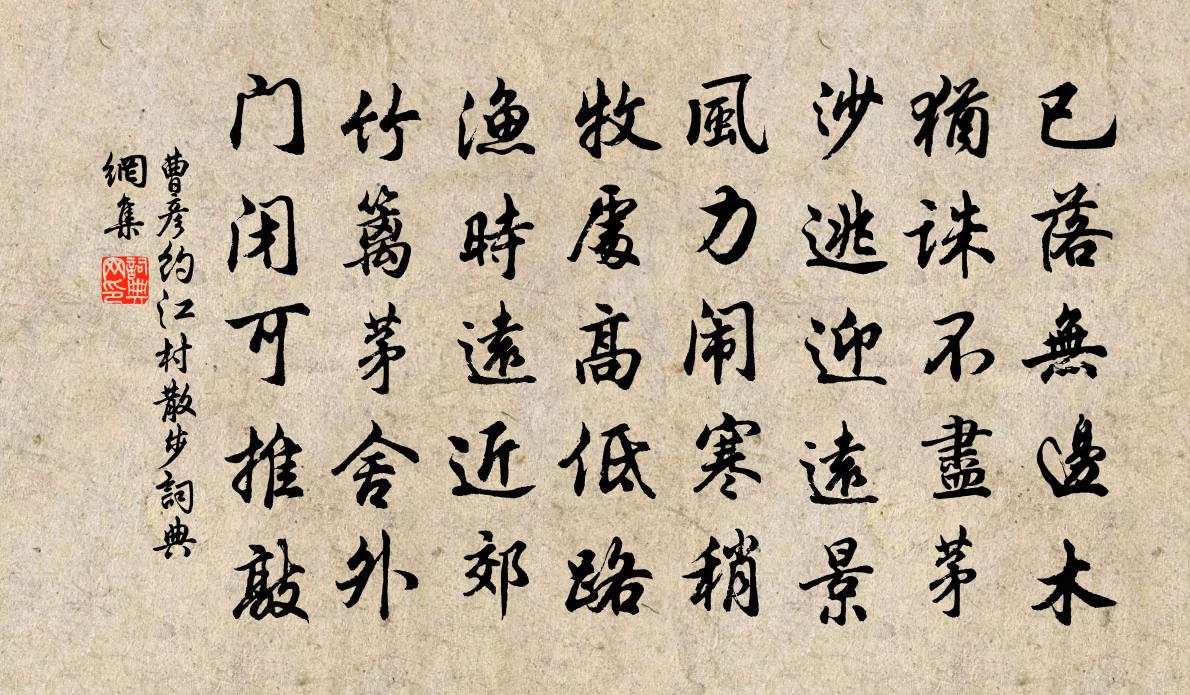 已落無邊木
猶誅不盡茅
沙逃迎遠景
風力闹寒稍
牧處高低路
漁時遠近郊
竹篱茅舍外
门闭可推敲
曹彦約江村散步詞典
網集
詞典
网印